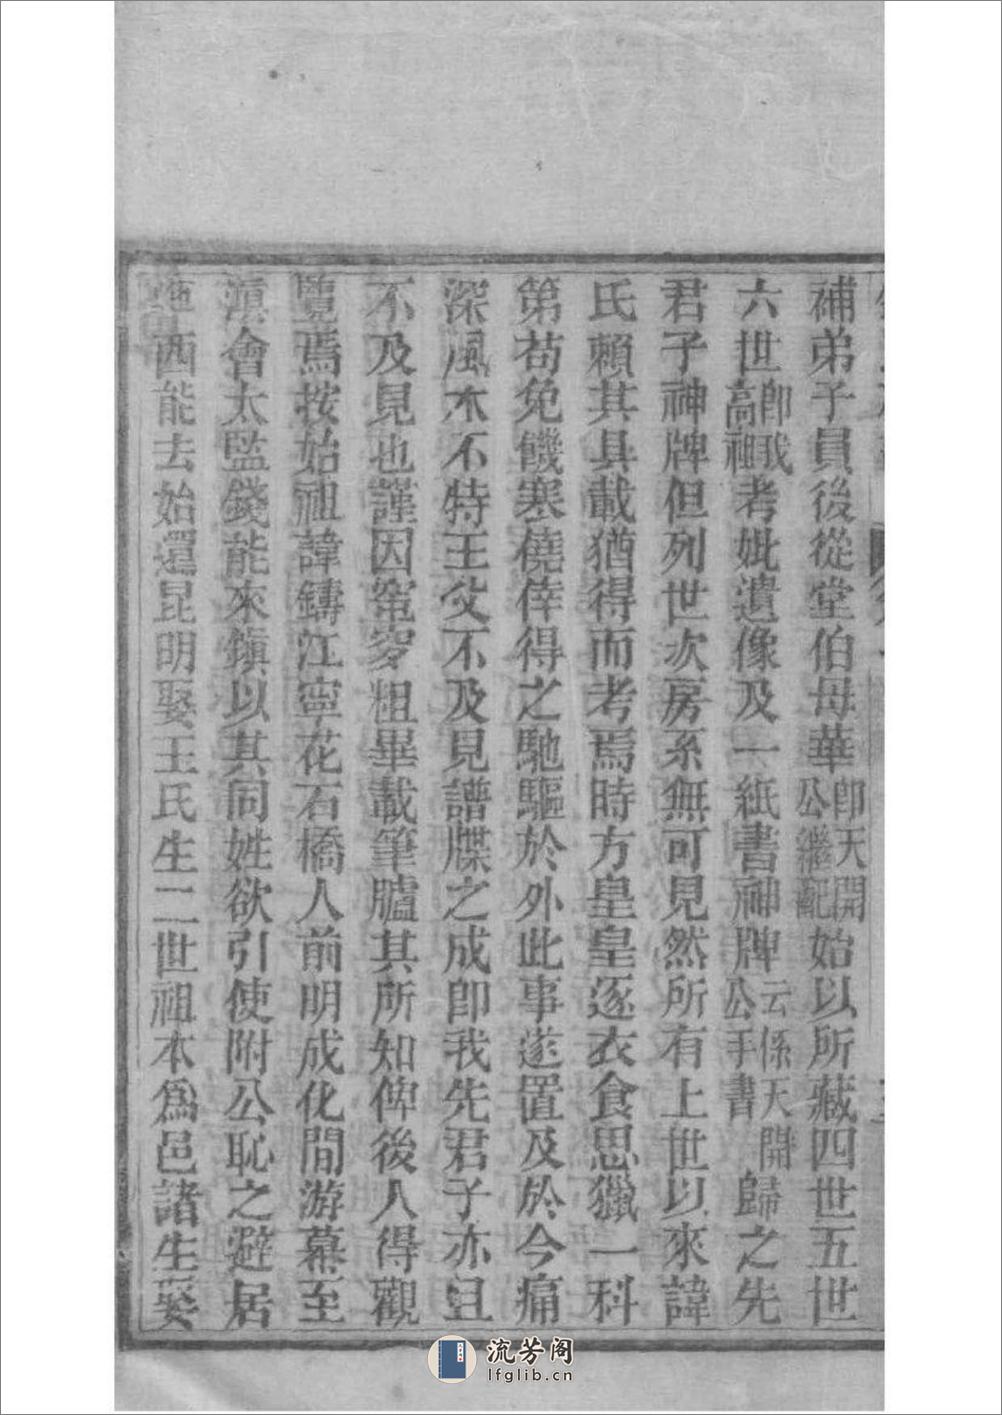 補弟子員後從堂伯母華即天開公繼配始以所藏四世五世
六世即我高祖考妣遺像及一紙書神牌云係天開公手書歸之先
君子神牌但列世次房系無可見然所有上世以來諱
氏賴其具載猶得而考焉時方皇皇逐衣食思獵一科
第苟免饑寒僥倖得之馳驅於外此事遂置及於今痛
深風木不特王父不及見譜牒之成即我先君子亦且
不及見也謹因窀穸粗畢載筆臚其所知俾後人得觀
覽焉按始祖諱鑄江寧花石橋人前明成化間游幕至
滇會太監錢能來鎮以其同姓欲引使附公恥之避居
迤西能去始還昆明娶王氏生二世祖本為邑諸生娶
流芳阁
lfglib.cn